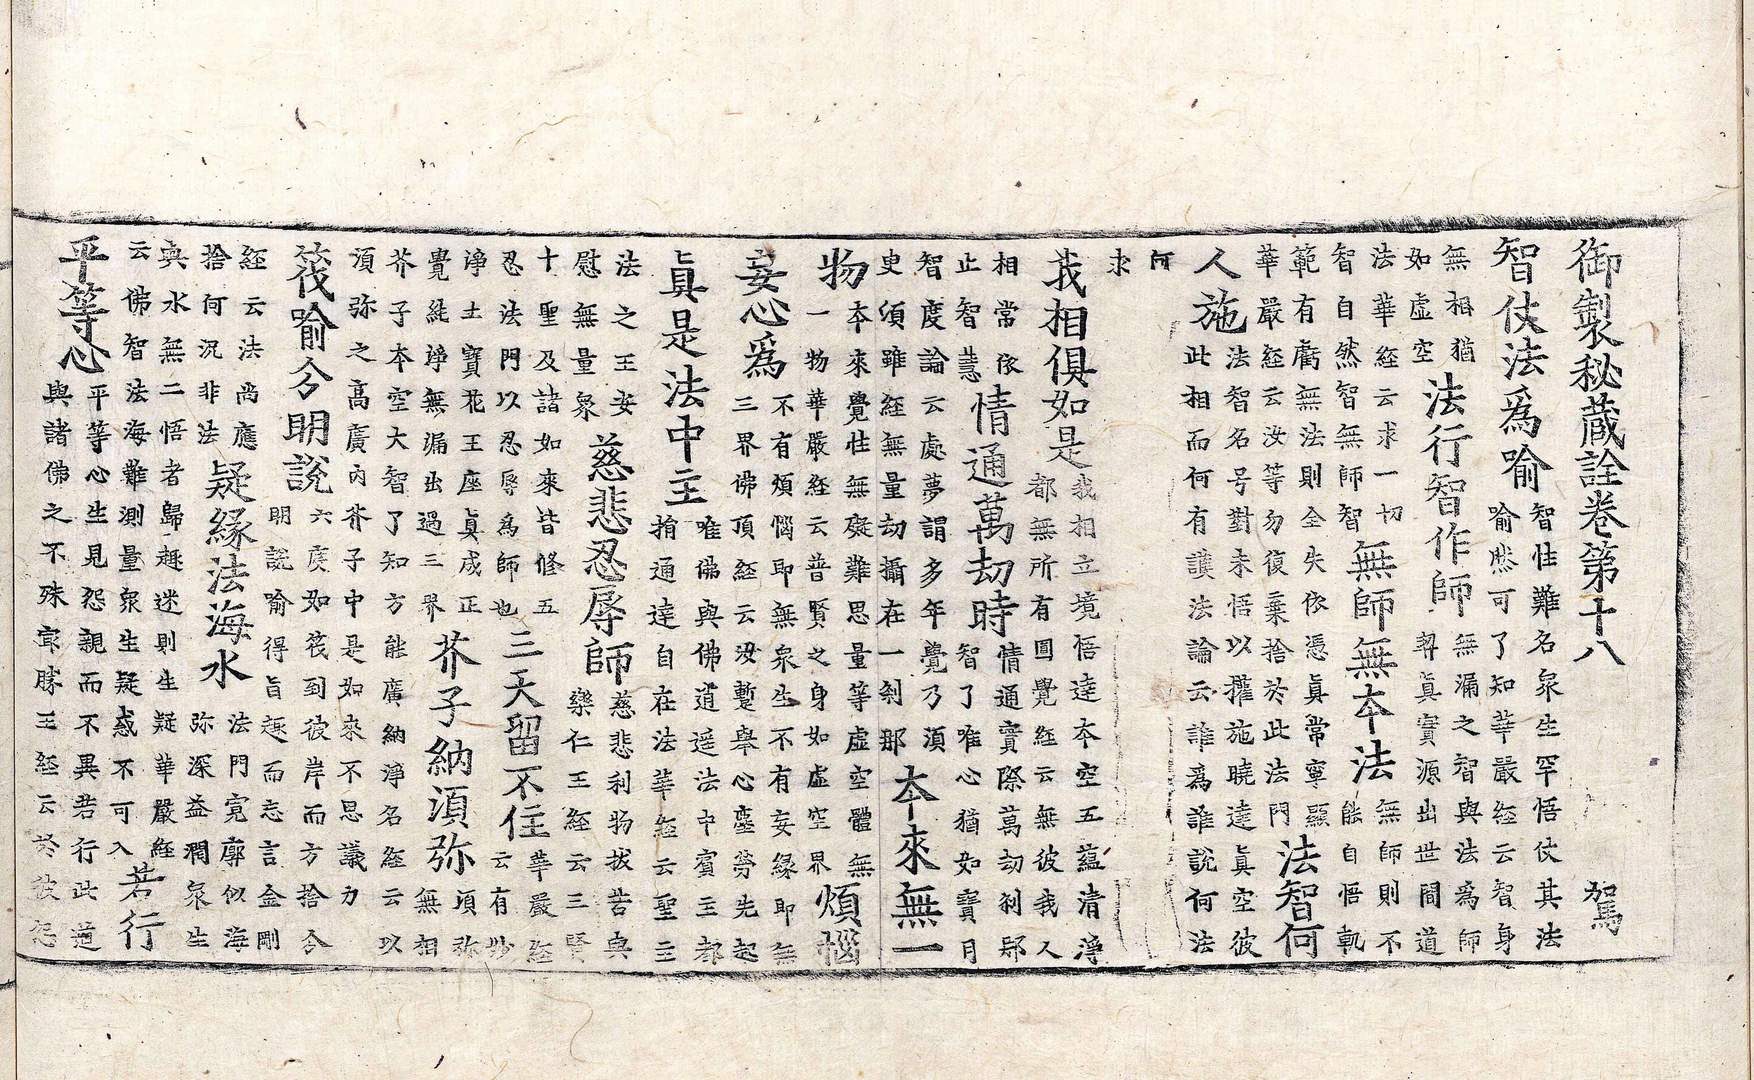 御製秘蔵詮卷第十八 駕
智仗法爲喻
智性難名衆生罕悟仗其法
喻然可了知華嚴經云智身
無相猶
如虛空
法行智作師
無漏之智與法爲師
契眞實源出世間道
法華經云求一切
智自然智無師智
無師無本法
無師則不
能自悟軌
範有虧無法則全失依憑眞常寧顯
華嚴經云汝等勿復棄捨於此法門
法智何
人施
法智名号對未悟以權施曉達眞空彼
此相而何有護法論云誰爲誰說何法
何
求
我相俱如是
我相立境悟達本空五蘊清淨
都無所有圓覺經云無彼我人
相常依
止智慧
情通萬劫時
情通實際萬劫刹那
智了唯心猶如寶月
智度論云處夢謂多年覺乃湏
史湏雖經無量劫攝在一刹那
本來無一
物
本來覺性無礙難思量等虛空體無
一物華嚴經云普賢之身如虛空界
煩惱
妄心爲
不有煩惱即無衆生不有妄緣即無
三界佛頂經云汝暫舉心塵勞先起
眞是法中主
唯佛與佛逍遥法中賓主都
捎通達自在法華經云聖主
法之王安
慰無量衆
慈悲忍辱師
慈悲利物拔苦與
樂仁王經云三賢
十聖及諸如來皆修五
忍法門以忍辱爲師也
三天留不住
華嚴經
云有妙
淨土寶花王座眞成正
覺純淨無漏出過三界
芥子納湏弥
湏弥
無相
芥子本空大智了知方能廣納淨名經云以
湏弥之高廣內芥子中是如來不思議力
筏喻分明說
六度如筏到彼岸而方捨今
明說喻得旨趣而忘言金剛
經云法尚應
捨何況非法
疑緣法海水
法門寬廓似海
弥深益潤衆生
與水無二悟者歸趣迷則生疑華嚴經
云佛智法海難測量衆生疑惑不可入
若行
平等心
平等心生見怨親而不異若行此道
與諸佛之不殊㝡勝王經云於彼怨